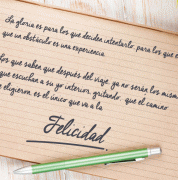 La gloria es para los que deciden intentarlo, para los que e
que un obstáculo es una experiencia.
hos que saben que después del viaje, ya no serán los mism
que escuchan a su yo interior, gritando, que el camino
e eligieron, es el único que va a la
Felicidad.